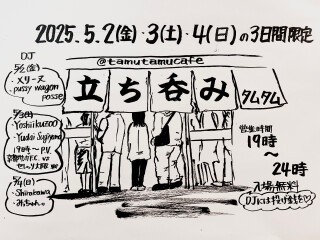 2025.5.2(金)・3(土)・4(日)の3日間限定
@tamutamucafe
立ち呑み
タムタム
DJ
5/2(金)
・メリーヌ
・pussy wagon posse
5/3(土)
・Yoshiikuzoo
・Yudai Sugiyama
19時〜 P.V.
京都サンガF.C. vs
セレッソ大阪
5/4(日)
・Shirakawa
・みっちゃん。
営業時間
19時
〜
24時
入場無料
DJには投げ銭を♡